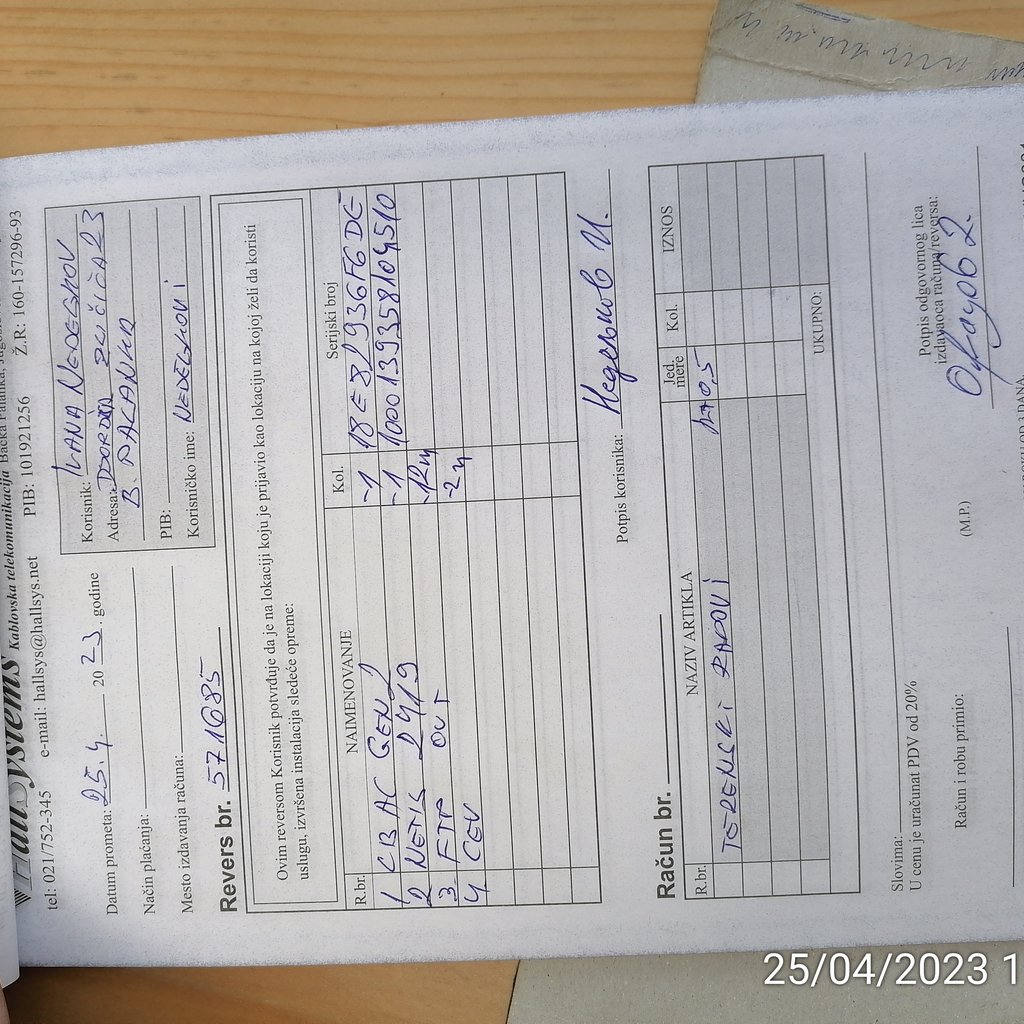 HallSystems Kablovska telekomunikacija Bačka Palanka,
tel: 021/752-345 e-mail: hallsys@hallsys.net PIB: 101921256 Ž.R: 160-157296-93
Datum prometa: 25.4. 2023. godine
Način plaćanja:
Mesto izdavanja računa:
Korisnik: IVANA NEDELJKOV
Adresa: ĐORĐA ZLIČIĆA 23
B. PALANKA
PIB:
Korisničko ime: NEDELJKOVI
Revers br. 571685
Ovim reversom Korisnik potvrđuje da je na lokaciji koju je prijavio kao lokaciju na kojoj želi da koristi
uslugu, izvršena instalacija sledeće opreme:
R.br. NAIMENOVANJE Kol. Serijski broj
1 CB AC GEN2 -1 18E8J936F6DE
2 NETIS 2419 -1 1000139358104510
3 FTP OUT -12m
4 CEV -2m
Potpis korisnika: Недељков И.
Račun br.
R.br. NAZIV ARTIKLA Jed. mere Kol. IZNOS
TERENSKI RADOVI 0,5
UKUPNO:
Slovima:
U cenu je uračunat PDV od 20%
Račun i robu primio:
(M.P.)
Potpis odgovornog lica
izdavaoca računa/reversa:
25/04/2023 1